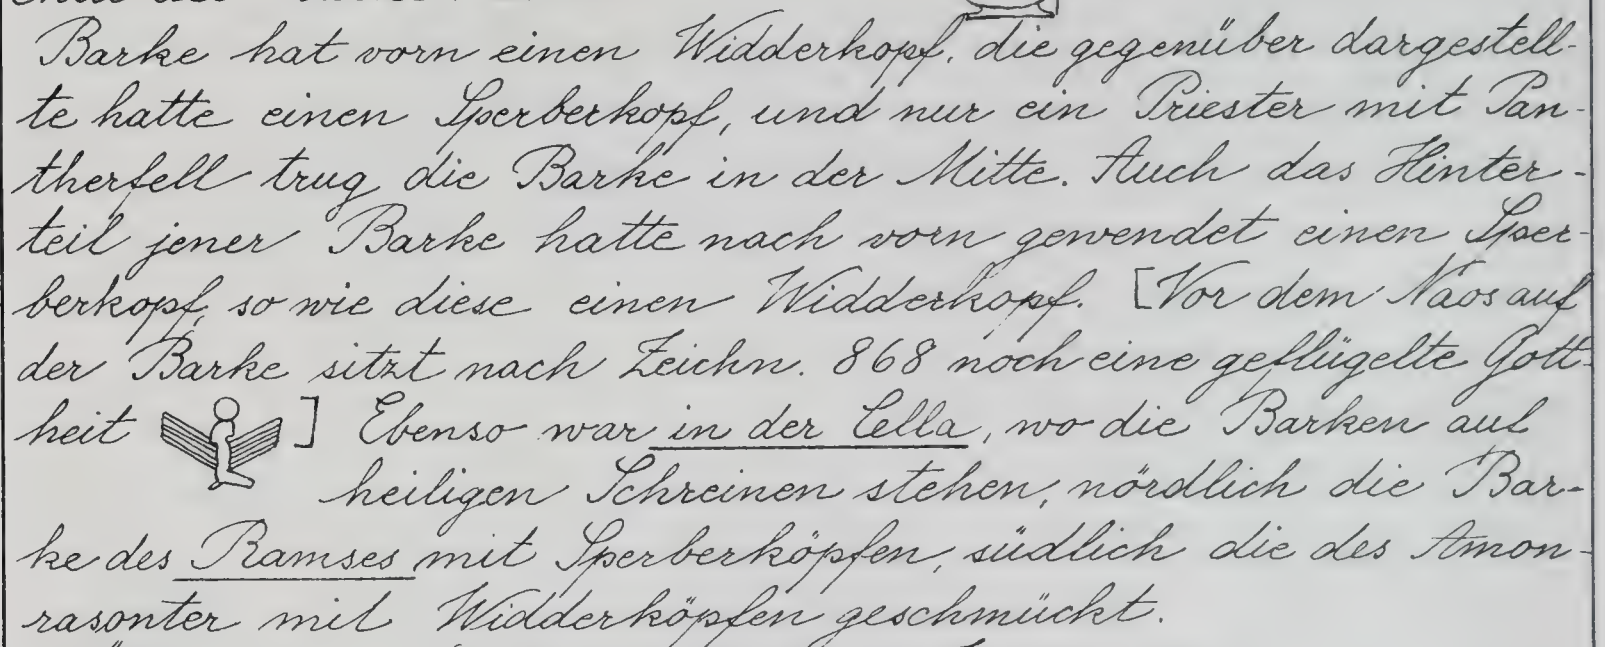 Barke hat vorn einen Widderkopf, die gegenüber dargestell-
te hatte einen Sperberkopf, und nur ein Priester mit Pan-
therfell trug die Barke in der Mitte. Auch das Hinter-
teil jener Barke hatte nach vorn gewendet einen Sper-
berkopf, so wie diese einen Widderkopf. [Vor dem Naos auf
der Barke sitzt nach Zeichn. 868 noch eine geflügelte Gott-
heit ] Ebenso war in der Cella, wo die Barken auf
heiligen Schreinen stehen, nördlich die Bar-
ke des Ramses mit Sperberköpfen, südlich die des Amon-
rasonter mit Widderköpfen geschmückt.